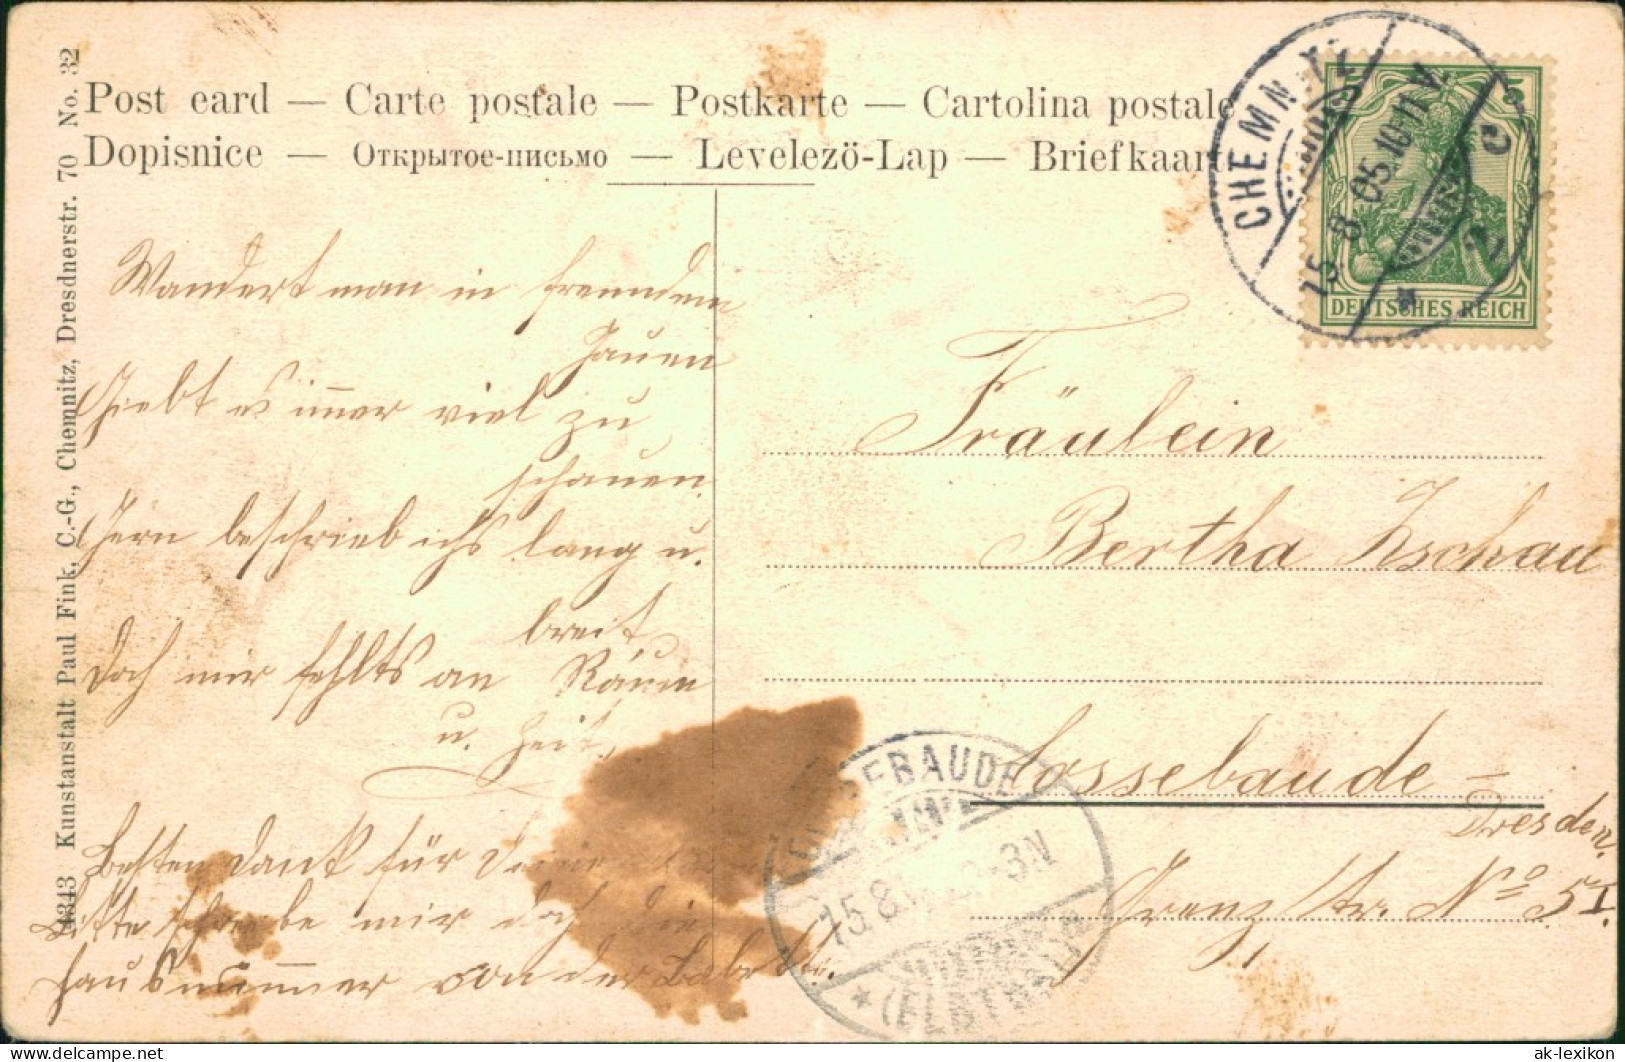 Post card — Carte postale — Postkarte — Cartolina postale
Dopisnice — Открытое-письмо — Levelezö-Lap — Briefkaart
4343 Kunstanstalt Paul Fink, C.-G., Chemnitz, Dresdnerstr. 70 No. 32
CHEMNITZ
15.8.05.10-11V.
* 2 c
5 5
DEUTSCHES REICH
Wandert man in fremden
Gauen
Giebt es immer viel zu
schauen.
Gern beschrieb ichs lang u.
breit
Doch mir fehlts an Raum
u. Zeit.
Besten Dank für Deine
Bitte schreibe mir doch die
Hausnummer von der
Fräulein
Bertha Zschau
Cossebaude -
Dresden.
Grenzstr. No 5 I.
COSSEBAUDE
15.8. 2-3N
* (ELBTHAL)
ak-lexikon